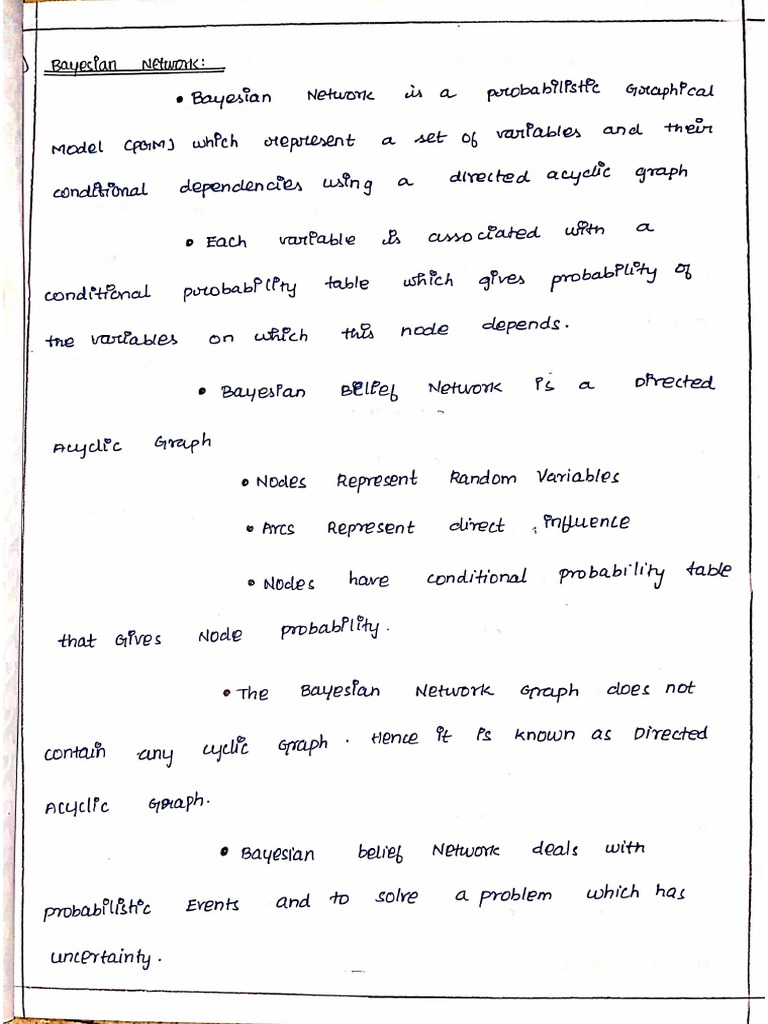 Bayesian Network:
• Bayesian Network is a probabilistic Graphical
Model (PGM) which represent a set of variables and their
conditional dependencies using a directed acyclic graph
• Each variable is associated with a
conditional probability table which gives probability of
the variables on which this node depends.
• Bayesian Belief Network is a Directed
Acyclic Graph
• Nodes Represent Random Variables
• Arcs Represent direct influence
• Nodes have conditional probability table
that Gives Node probability.
• The Bayesian Network Graph does not
contain any cyclic Graph. Hence it is known as Directed
Acyclic Graph.
• Bayesian belief Network deals with
probabilistic Events and to solve a problem which has
uncertainty.